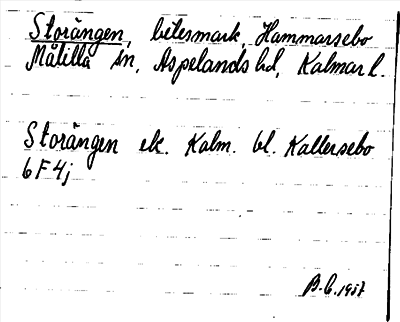 Storängen, betesmark, Hammarsebo
Målilla sn, Aspelands hd, Kalmar l.
Storängen ek. Kalm. bl. Kallersebo
6 F 4j